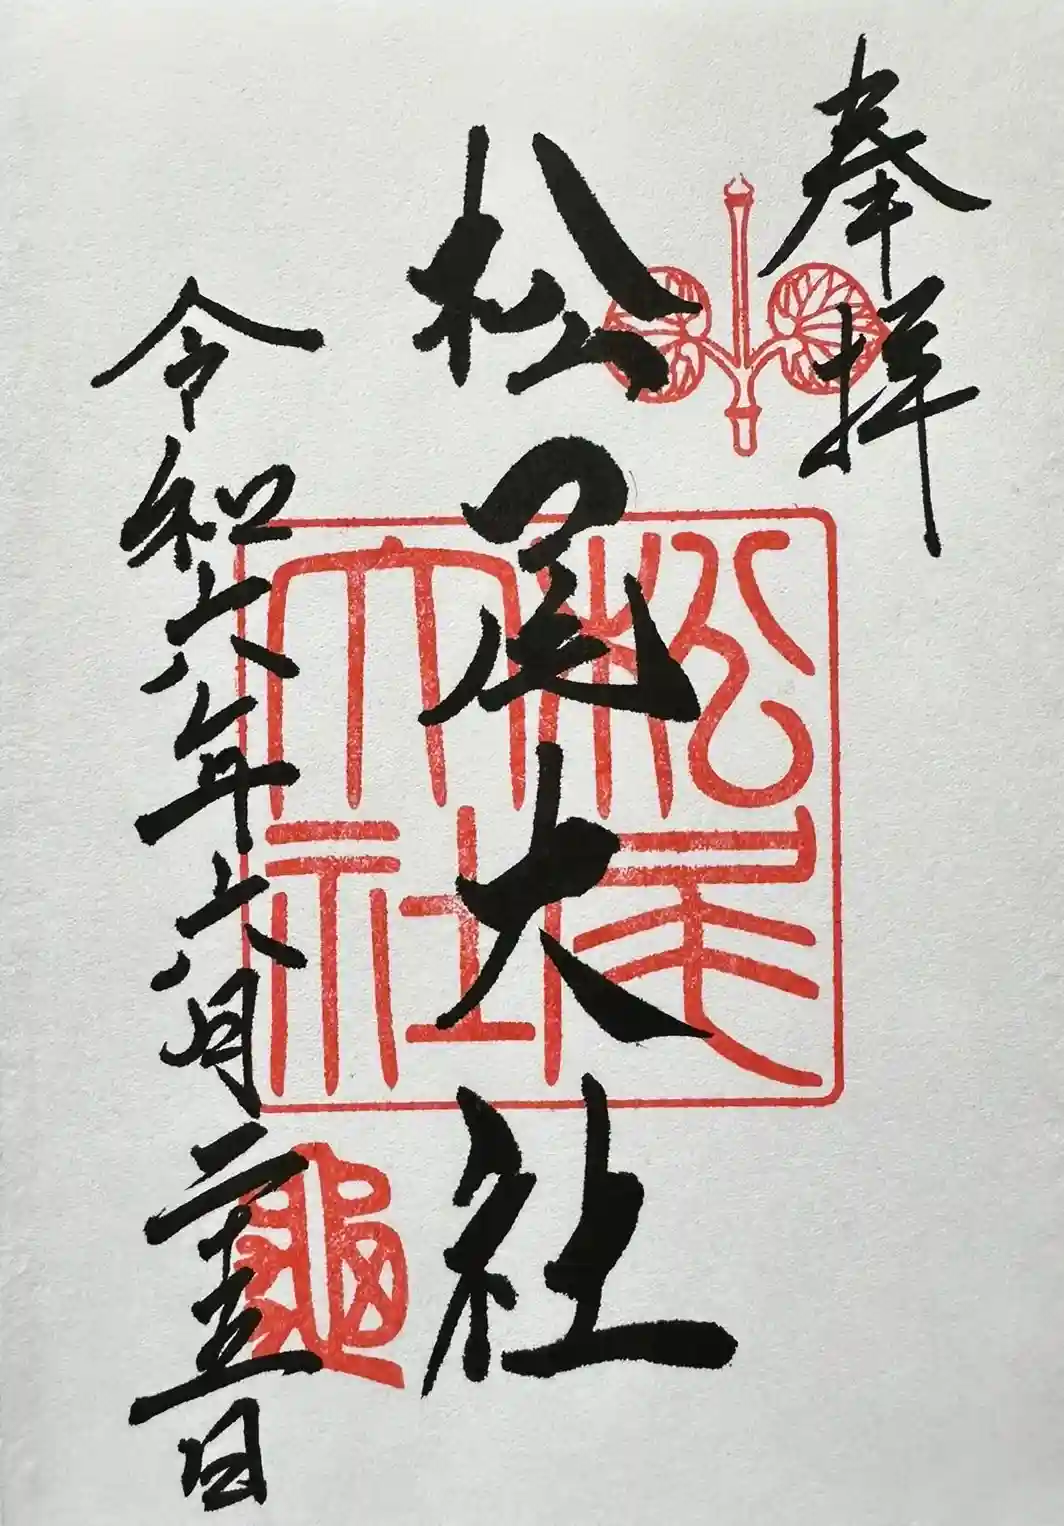 奉拝
松尾大社
松尾大社
令和六年六月二十五日
亀